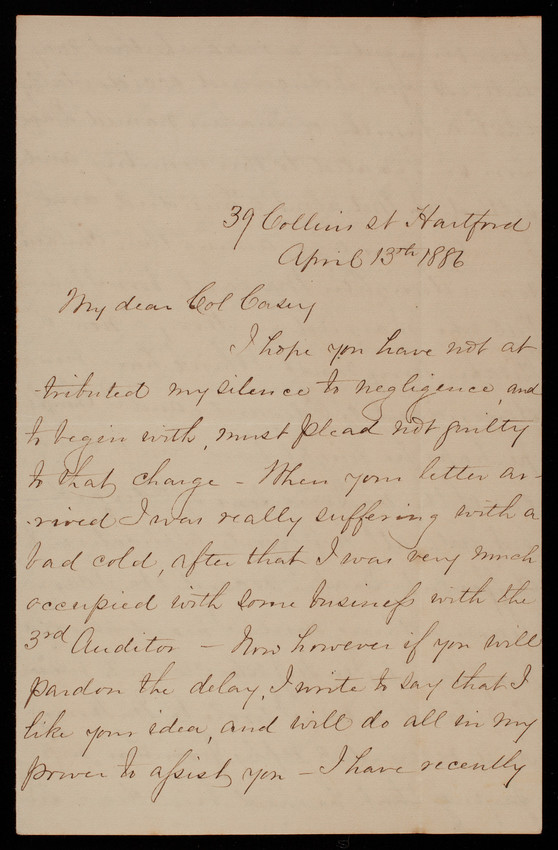 39 Collins st Hartford
April 13th 1886
My dear Col Casey
I hope you have not at
-tributed my silence to negligence, and
to begin with, must plead not guilty
to that charge - When your letter ar-
-rived I was really suffering with a
bad cold, after that I was very much
occupied with some business with the
3rd Auditor - Now however if you will
pardon the delay, I write to say that I
like your idea, and will do all in my
power to assist you - I have recently